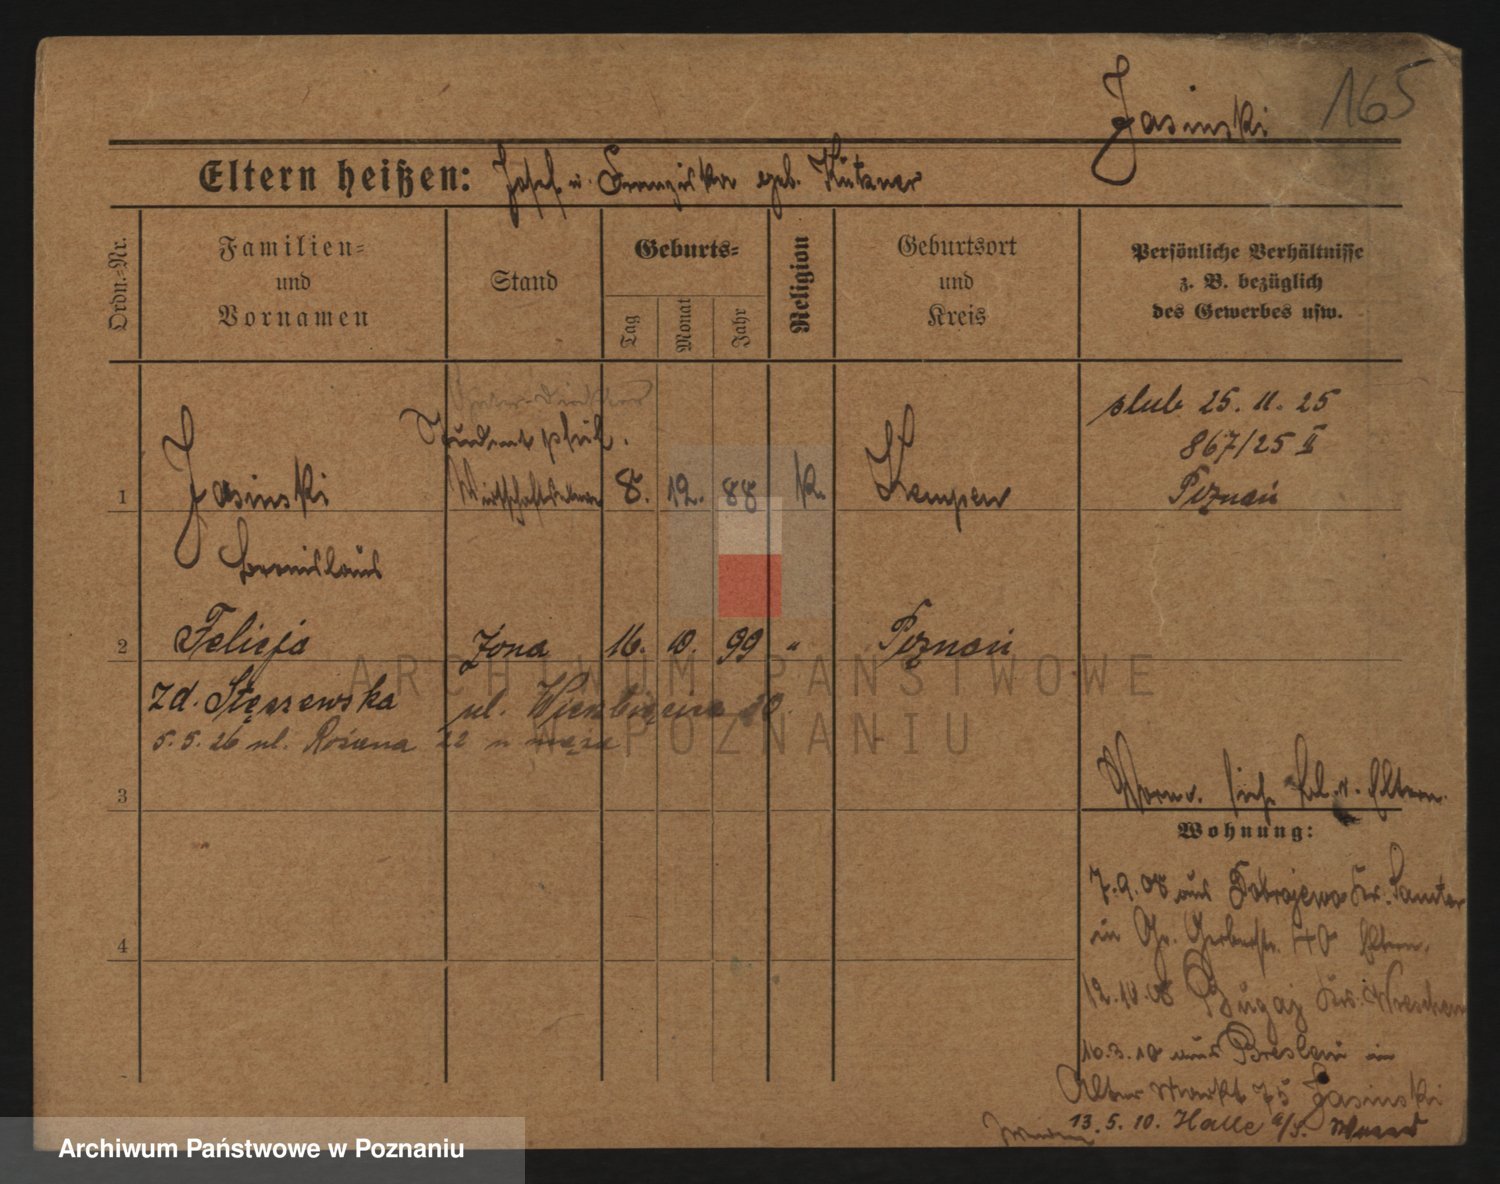 165
Jasinski
Eltern heißen: Josef u. Franziska geb. Kutzner
Ordn.-Nr.
Familien-
und
Vornamen
Stand
Geburts-
Tag
Monat
Jahr
Religion
Geburtsort
und
Kreis
Persönliche Verhältnisse
z. B. bezüglich
des Gewerbes usw.
Student phil.
1 Jasinski 8. 12. 88 k. Kempen
Bronislaus
ślub 25. 11. 25
867/25 II
Poznań
2 Felicja żona 16. 10. 99 " Poznań
zd. Stęszewska ul. Wierzbięcice
5. 5. 26 ul. Różana 22 u męża
3
4
Eltern.
Wohnung:
7.9.08 aus Dobrojewo Kr. Samter
in Gr. Gerberstr. 40 Eltern.
12.10.08 Bugaj Kr. Wreschen
10.3.10 aus Breslau in
Alter Markt 75 Jasinski
13. 5. 10. Halle a/S.
ARCHIWUM PAŃSTWOWE
W POZNANIU
Archiwum Państwowe w Poznaniu